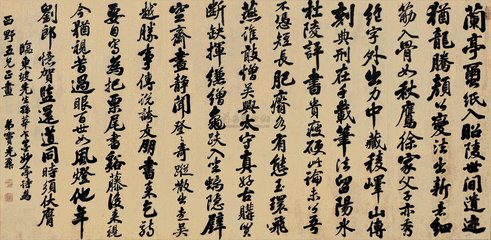 蘭亭繭紙入昭陵世間遺迹
猶龍騰顏公變法出新意細
筋入骨如秋鷹徐家父子亦秀
絕字外出力中藏稜嶧山傳
刻典刑在千載筆法留陽冰
杜陵評書貴瘦硬此論未公吾
不憑短長肥瘠各有態玉環飛
燕誰敢憎吳興太守真好古購買
斷缺揮縑繒龜趺入坐螭隱壁
空齋晝靜聞登登奇蹤散出走吳
越勝事傳說誇友朋書來乞詩
要自寫為把栗尾書谿藤後來視
今猶視昔過眼百世如風燈他年
劉郎憶賀監還道同時須服膺
臨東坡先生孫莘老墨妙亭詩為
西野五兄正 弟竇光鼐